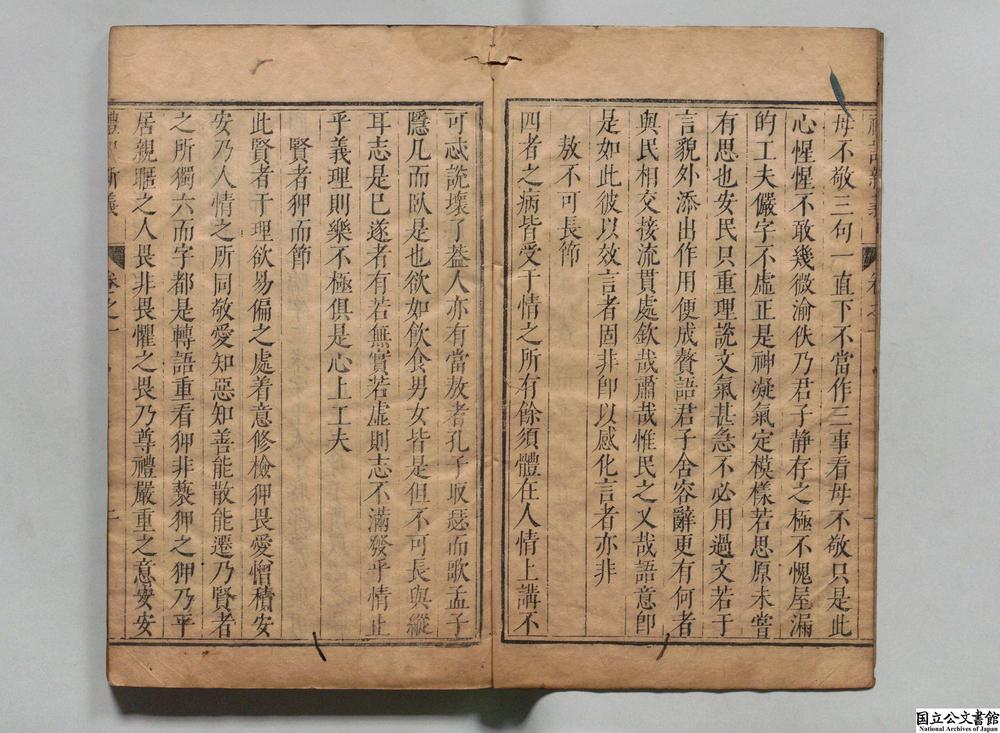 毋不敬三句一直下不當作三事看毋不敬只是此
心惺惺不敢幾微渝佚乃君子静存之極不愧屋漏
的工夫儼字不虛正是神凝氣定模樣若思原未嘗
有思也安民只重理説文氣甚急不必用過文若于
言貌外添出作用便成贅語君子舍容辭更有何者
與民相交接流貫處欽哉肅哉惟民之又哉語意卽
是如此彼以效言者固非卽以感化言者亦非
敖不可長節
四者之病皆受于情之所有餘須體在人情上講不
可忒説壞了葢人亦有當敖者孔子取瑟而歌孟子
隱几而臥是也欲如飲食男女皆是但不可長與縱
耳志是已遂者有若無實若虛則志不滿發乎情止
乎義理則樂不極俱是心上工夫
賢者狎而節
此賢者于理欲易偏之處着意修檢狎畏愛憎積安
安乃人情之所同敬愛知惡知善能散能遷乃賢者
之所獨六而字都是轉語重看狎非褻狎之狎乃平
居親暱之人畏非畏懼之畏乃尊禮嚴重之意安安
禮記新義
卷之一
二
国立公文書館
National Archives of Japan